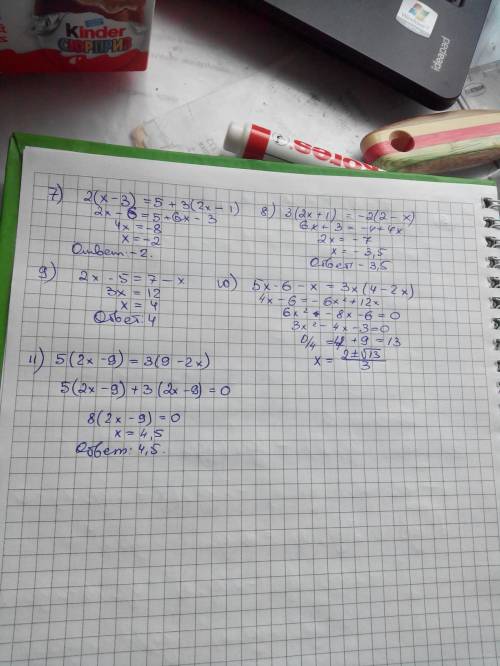 Kinder
СЮРПРИЗ
Microsoft
Windows
ideapad
7) 2(x-3) = 5 + 3(2x-1)
2x - 6 = 5 + 6x - 3
4x = -8
x = -2
Ответ: -2.
8) 3(2x+1) = -2(2-x)
6x + 3 = -4 + 4x
2x = -7
x = -3,5
Ответ: -3,5
9) 2x - 5 = 7 - x
3x = 12
x = 4
Ответ: 4
10) 5x - 6 - x = 3x(4-2x)
4x - 6 = -6x² + 12x
6x² - 8x - 6 = 0
3x² - 4x - 3 = 0
D/4 = 4 + 9 = 13
x = (2±√13)/3
11) 5(2x-9) = 3(9-2x)
5(2x-9) + 3(2x-9) = 0
8(2x-9) = 0
x = 4,5
Ответ: 4,5.